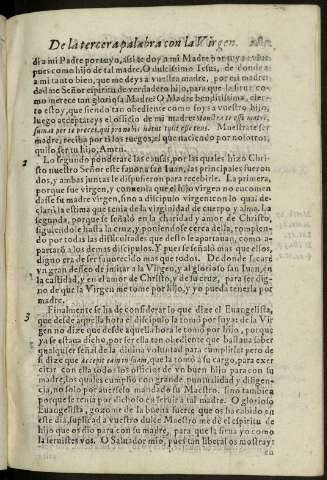 De la tercera palabra con la Virgen.
di a mi Padre por tuyo, assi te doy a mi Madre por tuya
pues como hijo de tal madre. O dulcissimo Iesus, de donde a
a mi tanto bien, que me deys a vuestra madre, por mi madre:
dad me Señor espiritu de verdadero hijo, para que la sirua co-
mo merece tan gloriosa Madre. O Madre benditissima, cier-
to estoy, que siendo tan obediente como soys a vuestro hijo,
luego acceptareys el officio de mi madre: Monstra te esse matrem,
sumat per te preces, qui pro nobis natus tulit esse tuus. Muestrate ser
madre, reciba por ti los ruegos, el que naciendo por nosotros,
quiso ser tu hijo, Amen.
2 Lo segundo ponderarè las causas, por las quales hizo Chri-
sto nuestro Señor este fauor a san Iuan, las principales fueron
dos, y ambas juntas le dispusieron para recebirle. La primera,
porque fue virgen, y conuenia que el hijo virgen no encomen
dasse su madre virgen, sino a discipulo virgen: con lo qual de-
clarò la estima que tenia de la virginidad de cuerpo y alma. La
segunda, porque se señalò en la charidad y amor de Christo,
siguiendole hasta la cruz, y poniendose cerca della, rompien-
do por todas las dificultades que desto le apartauan, como a-
partarõ a los demas discipulos. Y pues se señalò mas que ellos,
digno era de ser fauorecido mas que todos. De donde sacarè
vn gran desseo de imitar a la Virgen, y al glorioso san Iuan, en
la castidad, y en el amor de Christo, y de su cruz, para ser dig-
no de que la Virgen me tome por hijo, y yo pueda tenerla por
madre.
3 Finalmente se ha de considerar lo que dize el Euangelista,
que desde aquella hora el discipulo la tomò por suya: de la Vir
gen no dize que desde aquella hora le tomò por hijo, porque
ya se estaua dicho, por ser ella tan obediente que bastaua saber
qualquier señal de la diuina voluntad para cumplirla: pero de
si dize que accepit eam in suam, que la tomò a su cargo, para exer
citar con ella todos los officios de vn buen hijo para con su
madre, los quales cumplio con grande puntualidad y diligen-
cia, no solo por auerselo mandado su Maestro, sino tambien
porque se tenia por dichoso en seruir a tal madre. O glorioso
Euangelista, gozome de la buena suerte que os ha cabido en
este dia, suplicad a vuestro dulce Maestro me dè el espiritu de
hijo que os dio para con su madre, para que la sirua yo como
la seruistes vos. O Saluador mio, pues tan liberal os mostrays
en